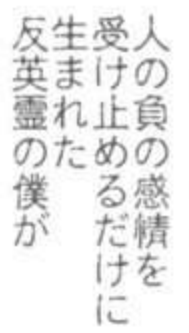 人の負の感情を
受け止めるだけに
生まれた
反英霊の僕が